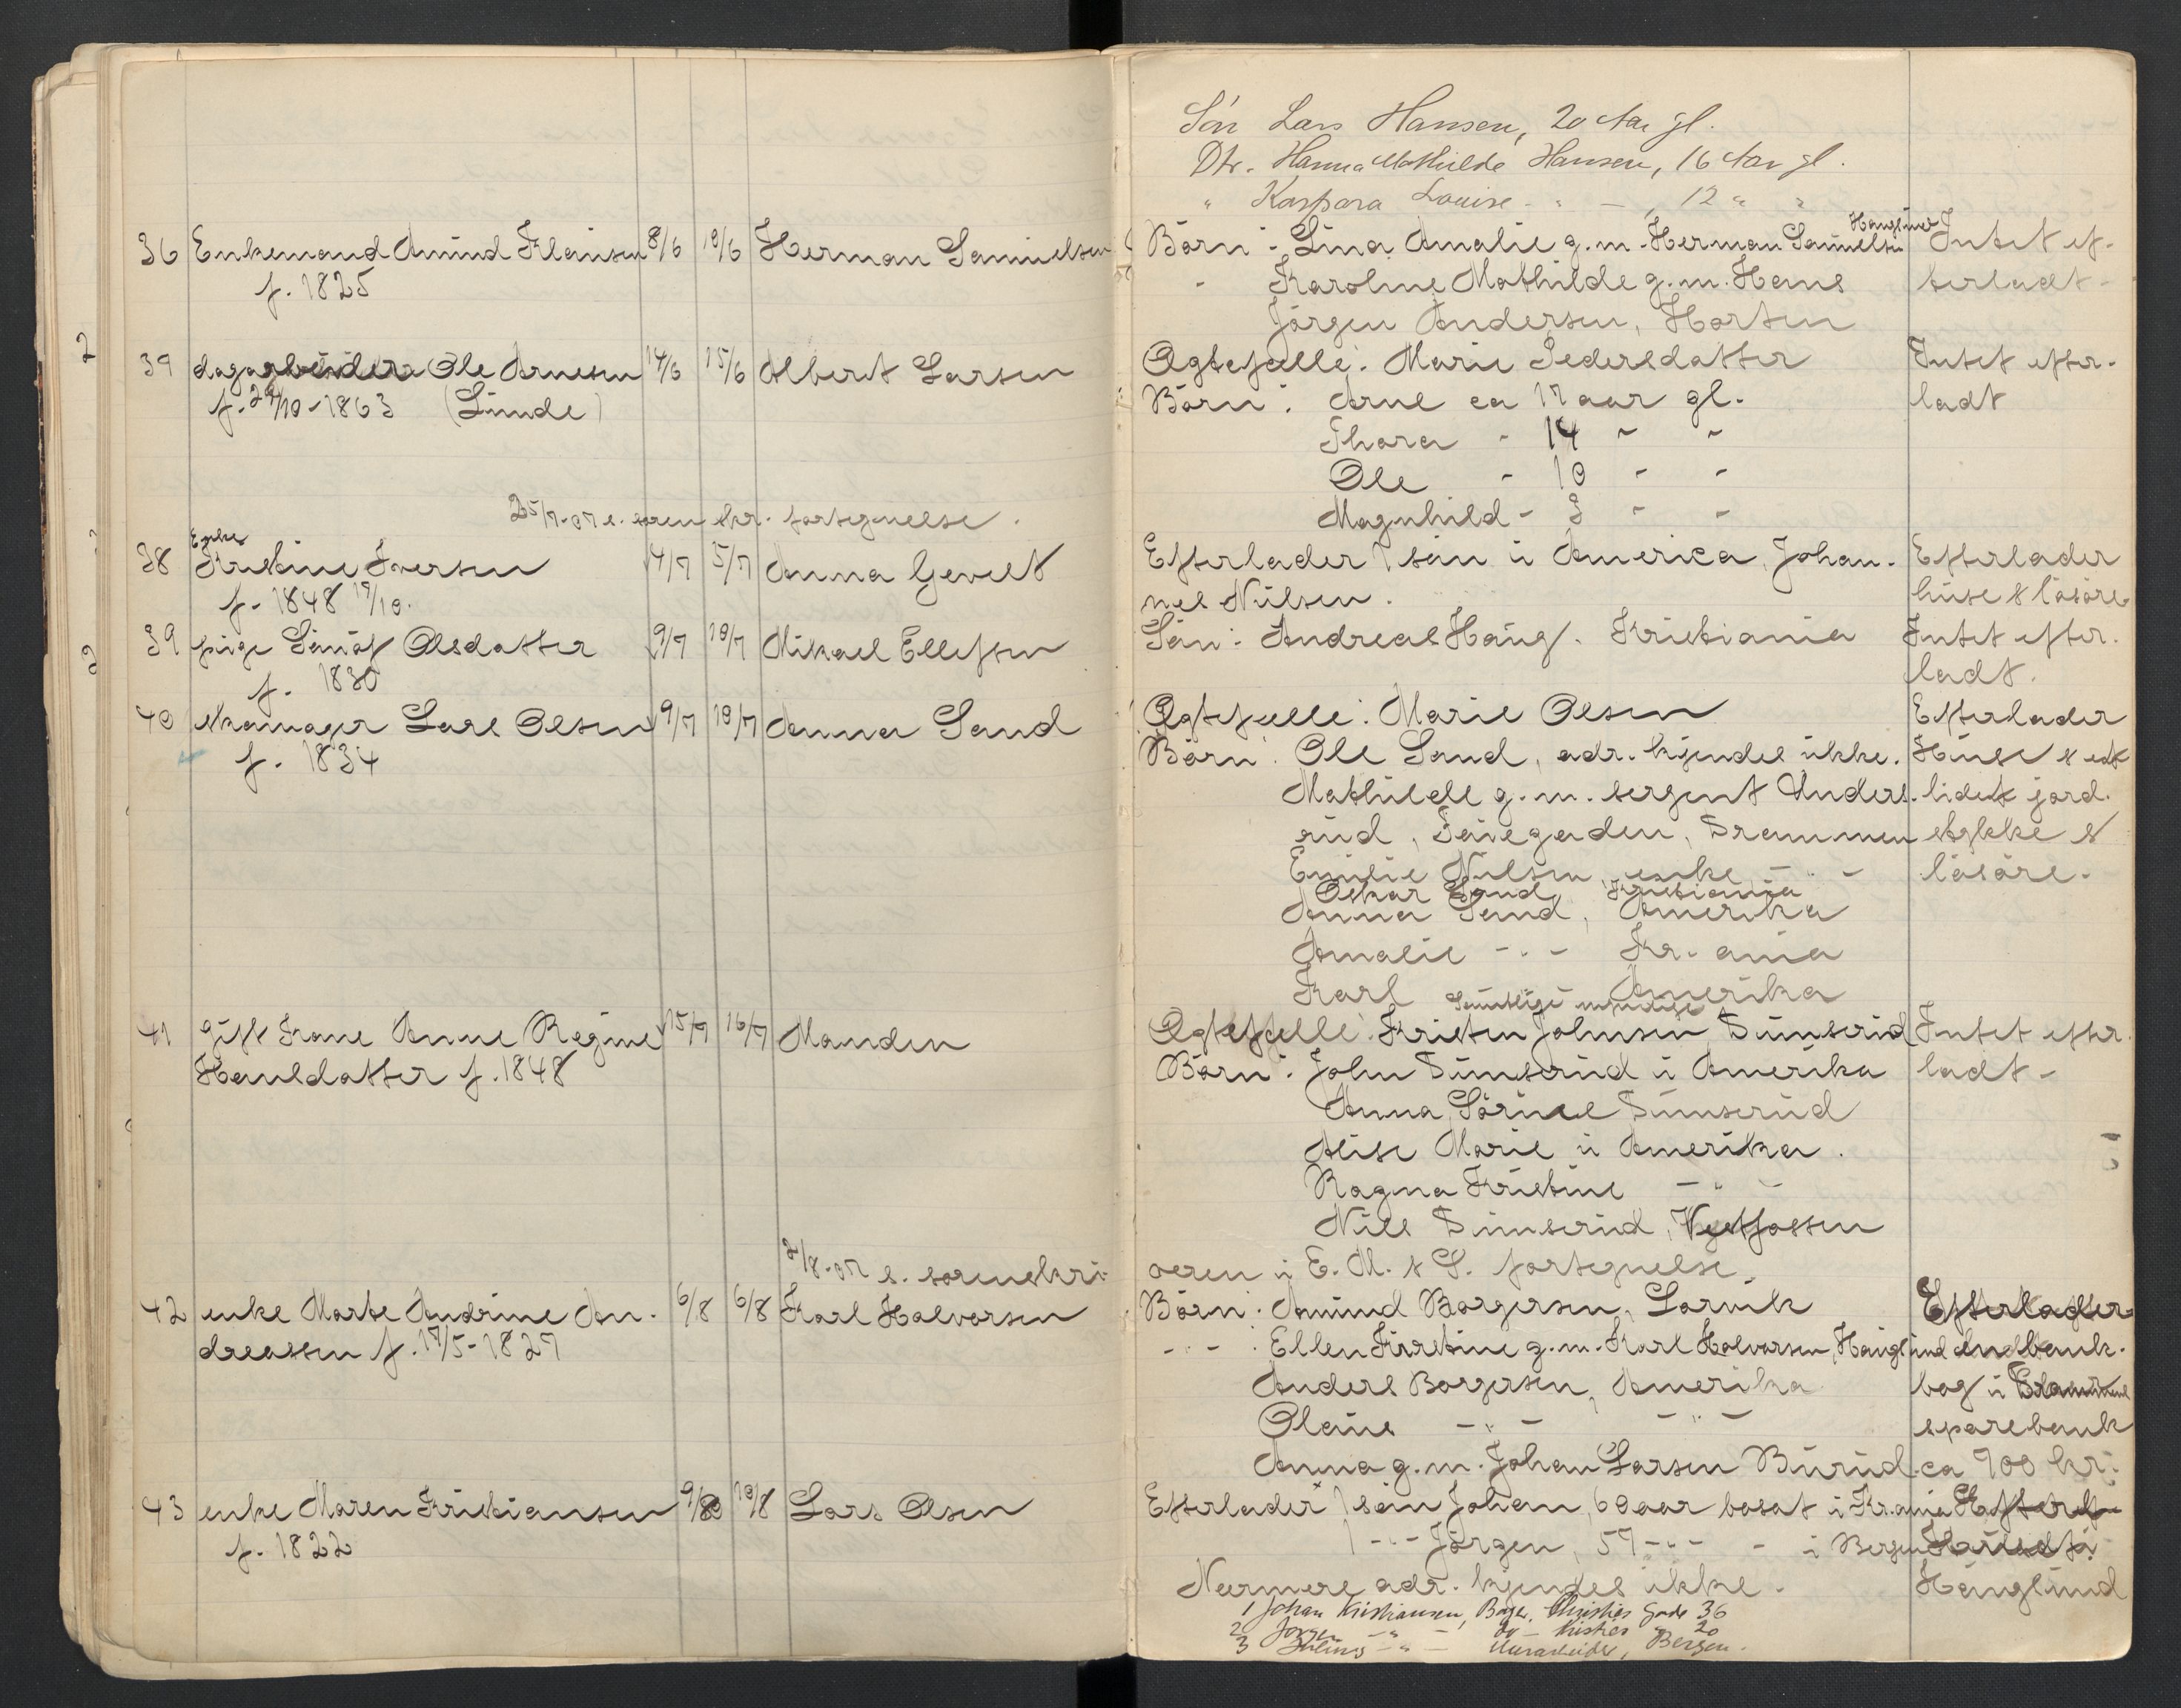 Søn Lars Hansen, 20 Aar gl.
Dtr. Hanna Mathilde Hansen, 16 Aar gl.
" Kaspara Louise - " - , 12 " "
36 Enkemand Amund Klausen 8/6 10/6 Herman Samuelsen
f. 1825
Børn: Lina Amalie g.m. Herman Samuelsen Hauglund
- Karoline Mathilde g.m. Hans
Jörgen Andersen, Horten
Intet ef-
terladt-
39 dagarbeider Ole Arnesen 14/6 15/6 Albert Larsen
f. 29/10-1863 (Linde)
Ægtefælle: Marie Pedersdatter
Børn: Arne ca 17 aar gl.
Thora - 14 - -
Ole - 10 - -
Magnhild - 3 - -
Intet efter-
ladt
25/7-07 s. soren skr. fortegnelse.
38 Enke
Kristine Iversen 4/7 5/7 Anna Gevelt
f. 1848 19/10.
Efterlader 1 sön i America, Johan-
nes Nilsen.
Efterlader
huse & lösöre
39 pige Sünöf Olsdatter 9/7 10/7 Mikael Ellefsen
f. 1830
Sön: Andreas Haug. Kristiania
Intet efter-
ladt.
40 skomager Lars Olsen 9/7 10/7 Anna Sand
f. 1834
Ægtefælle: Marie Olsen
Børn: Ole Sand, adr. kjendes ikke.
Mathilde g.m. sergent Anders-
rud, Drammen
Emilie Nilsen, enke - " -
Oskar Sand, Kristiania
Anna Sand, Amerika
Amalie - " - Kr.ania
Karl Amerika
Samtlige myndige
Efterlader
Huse & et
lidet jord-
stykke &
lösöre.
41 gift Kone Anne Regine 15/7 16/7 Manden
Hansdatter f. 1848
Ægtefælle: Kristen Johnsen Dunserud
Børn: John Dunserud i Amerika
Anna Sörine Dunserud
Alise Marie i Amerika.
Ragna Kristine - " -
Nils Dunserud, Vestfossen
Intet efter-
ladt-
2/8-07 s. sorenskri-
veren i E. M. & S. fortegnelse.
42 enke Marte Andrine An- 6/8 6/8 Karl Halvorsen
dreassen f. 17/5-1827
Børn: Amund Borgersen, Larvik
- " - : Ellen Kirstine g.m. Karl Halvorsen, Hauglund
Anders Borgersen, Amerika
Olaus - " - - " -
Anna g.m. Johan Larsen Burud
Efterlader
en bank-
bog i Drammens
sparebank
ca 900 kr.
43 enke Maren Kristiansen 9/8 10/8 Lars Olsen
f. 1822
Efterlader 1 sön Johan, 60 aar bosat i Kr.ania
1 - " - Jörgen, 57 - " - - i Bergen
Nærmere adr. kjendes ikke.
Hauglund
1 Johan Kristiansen, Christies Gade 36
2 Jörgen - " - , do - Kristies " 20
3 Julius - " - Murarbeider, Bergen.